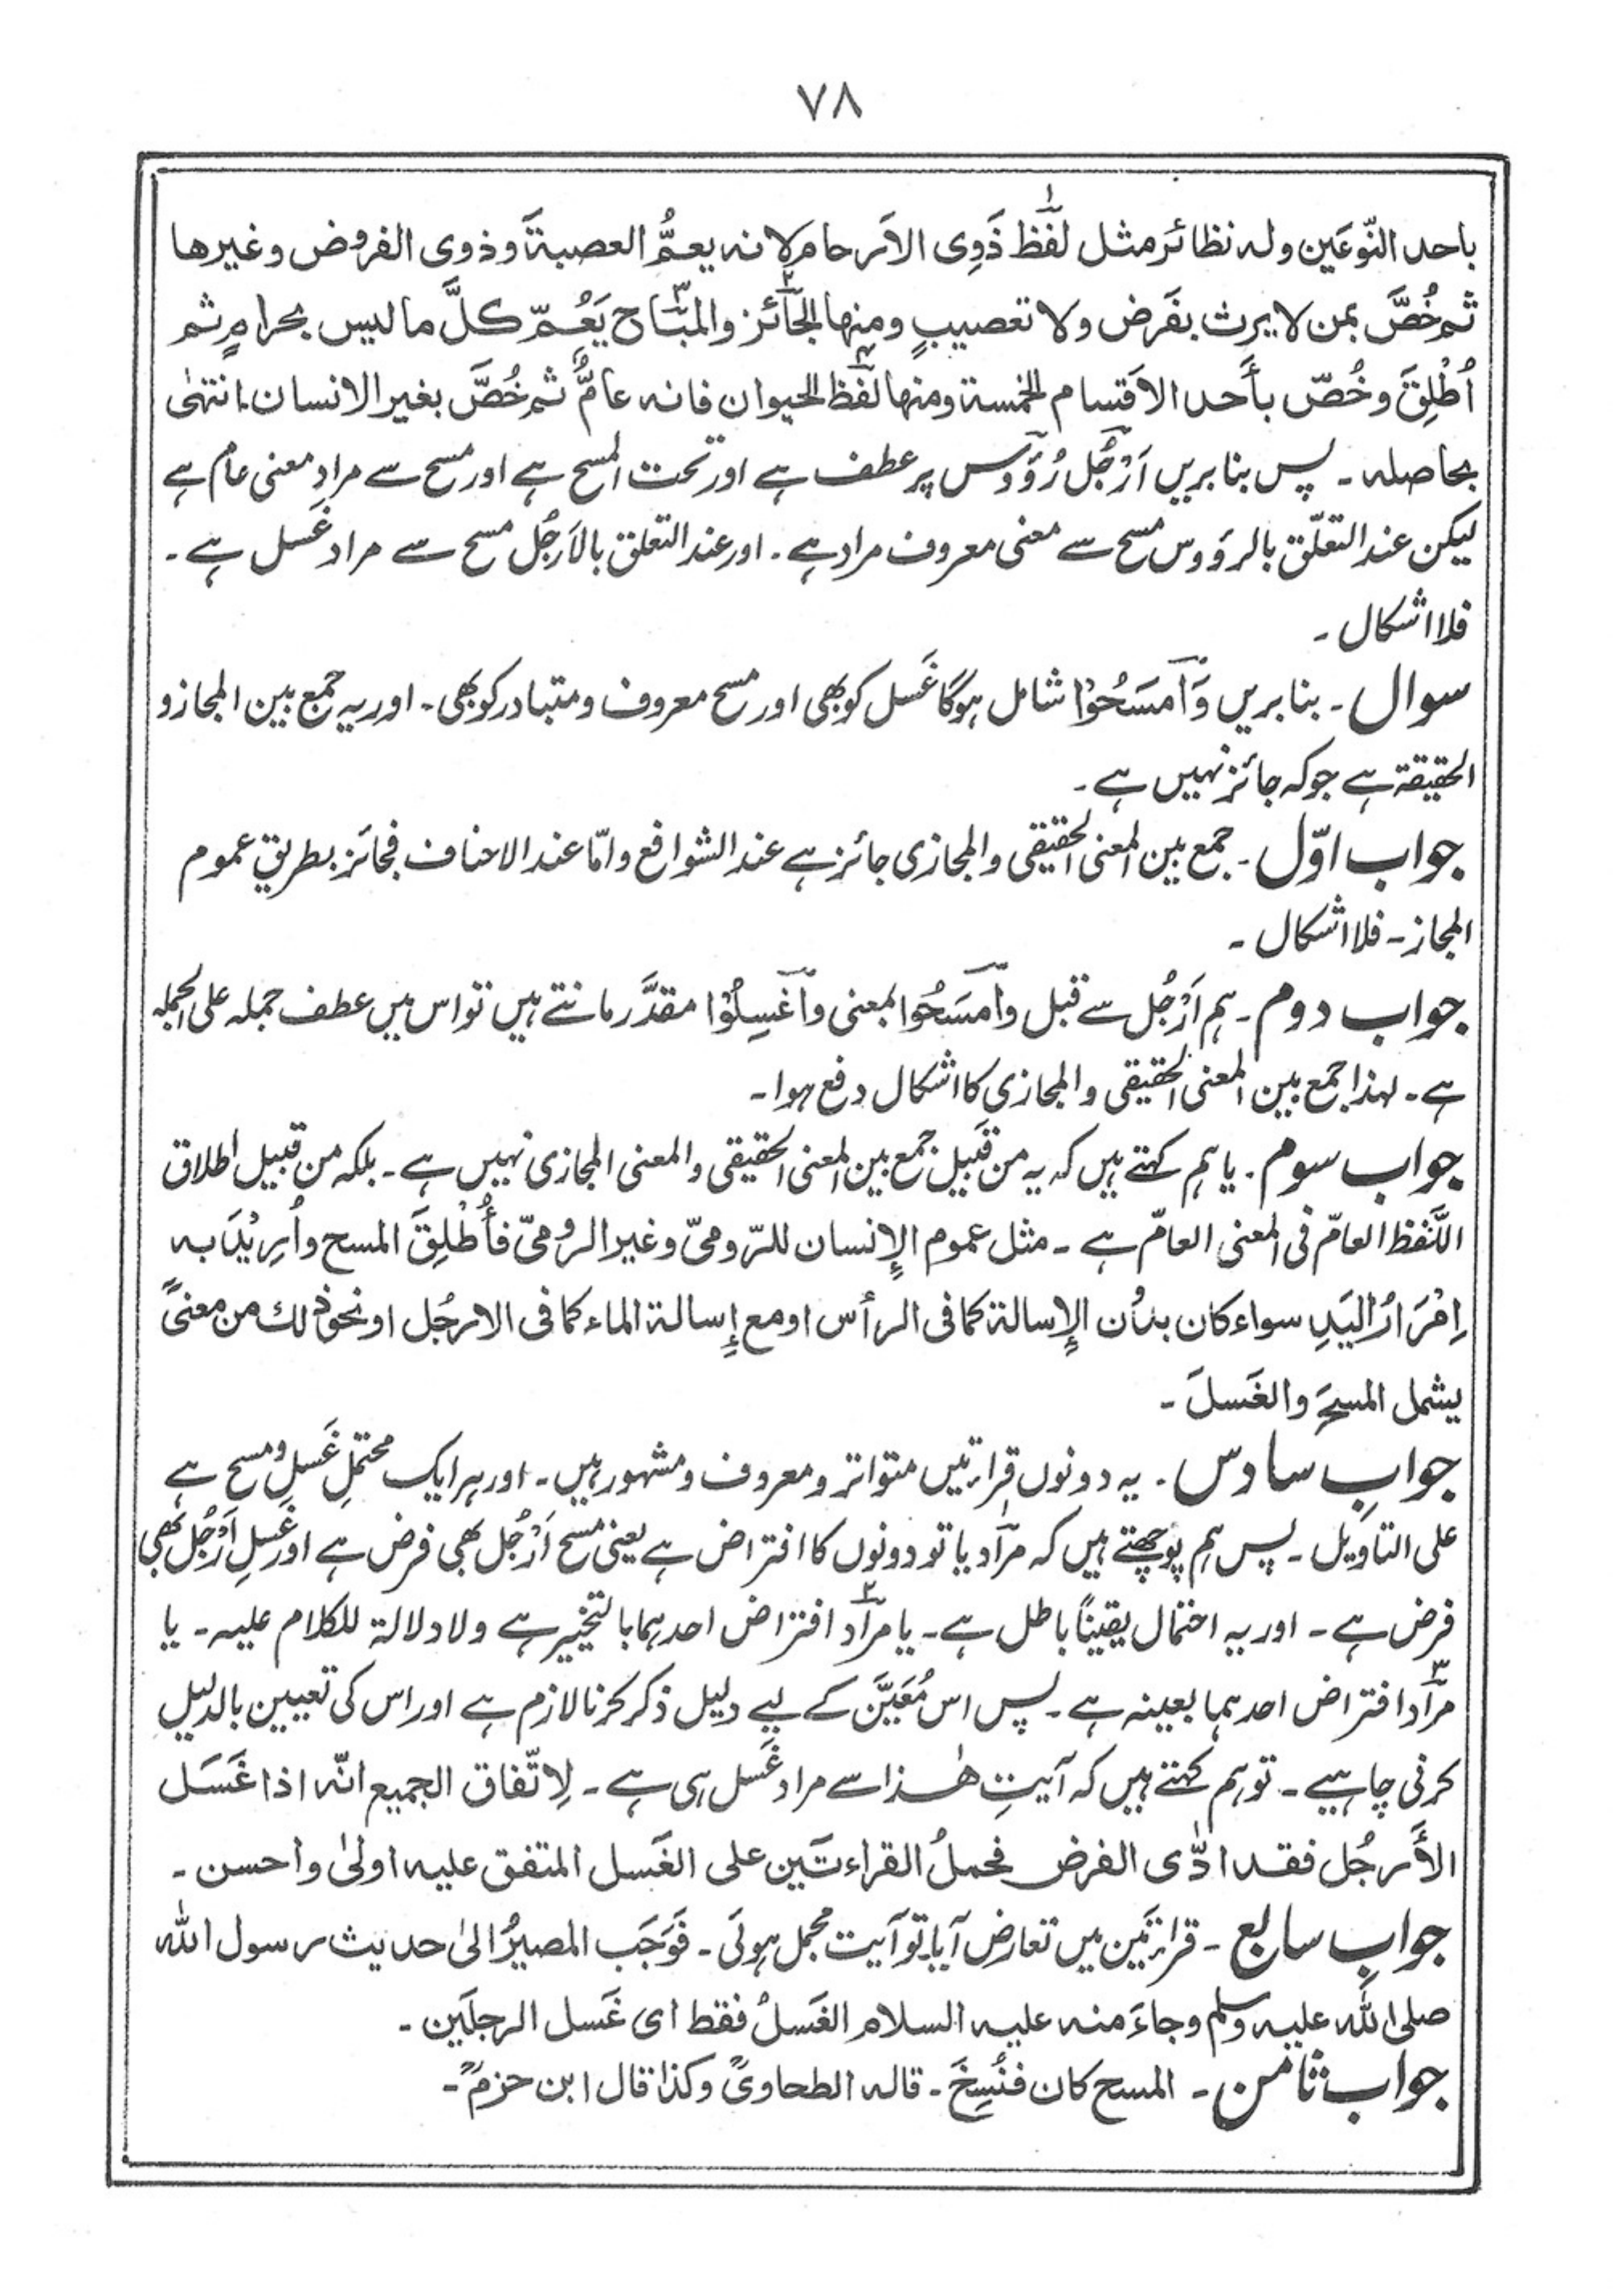 ۷۸
باحد النّوعَین وله نظائر مثل لفظ ذَوِی الاَرحام لانه یعمُّ العصبةَ وذوی الفروض وغیرها
ثم خُصَّ بمن لا یرث بفَرض ولا تعصیبٍ ومنها الجائز والمبَاح یَعُمّ کلَّ ما لیس بحرامٍ ثم
اُطْلِقَ وخُصّ بأَحد الاَقسام الخمسة ومنها لفظ الحیوان فانه عامٌّ ثم خُصَّ بغیر الانسان۔ انتهٰی
بحاصله ۔ پس بنا بریں اَرْجُل رُؤوس پر عطف ہے اور تحت المسح ہے اور مسح سے مرادِ معنی عام ہے
لیکن عند التعلّق بالرؤوس مسح سے معنی معروف مراد ہے ۔ اور عند التعلق بالاَرجُل مسح سے مراد غَسل ہے ۔
فلا اشکال ۔
سوال ۔ بنا بریں وَامسَحُوْا شامل ہوگا غَسل کو بھی اور مسح معروف ومتبادر کو بھی ۔ اور یہ جمع بین المجاز و
الحقیقة ہے جو کہ جائز نہیں ہے ۔
جواب اوّل ۔ جمع بین المعنی الحقیقی والمجازی جائز ہے عند الشوافع وامّا عند الاحناف فجائز بطریقِ عموم
المجاز ۔ فلا اشکال ۔
جواب دوم ۔ ہم اَرْجُل سے قبل وامسَحُوا بمعنی واغسِلُوْا مقدَّر مانتے ہیں تو اس میں عطف جملہ علی الجملہ
ہے ۔ لہذا جمع بین المعنی الحقیقی والمجازی کا اشکال دفع ہوا ۔
جواب سوم ۔ یا ہم کہتے ہیں کہ یہ من قَبیل جمع بین المعنی الحقیقی والمعنی المجازی نہیں ہے ۔ بلکہ من قبیل اطلاق
اللَّفظ العامّ فی المعنی العامّ ہے ۔ مثل عموم الإنسان للرّومیّ وغیر الرومیّ فأُطْلِقَ المسح واُرِیْدَ به
اِمْرَارُ الیَدِ سواء کان بدُن الإسالة کما فی الرأس او مع إسالة الماء کما فی الارجُل او نحو ذٰلك من معنیً
یشمل المسحَ والغَسلَ ۔
جوابِ سادس ۔ یہ دونوں قراءتیں متواتر و معروف و مشہور ہیں ۔ اور ہر ایک محتمَلِ غَسل ومسح ہے
علی التاویل ۔ پس ہم پوچھتے ہیں کہ مراد یا تو دونوں کا افتراض ہے یعنی مسح اَرْجُل بھی فرض ہے اور غَسلِ اَرْجُل بھی
فرض ہے ۔ اور یہ احتمال یقیناً باطل ہے ۔ یا مراد افتراض احدہما بالتخییر ہے ولا دلالة للکلام علیہ ۔ یا
مراد افتراض احدہما بعینہ ہے ۔ پس اس مُعَیَّن کے لیے دلیل ذکر کرنا لازم ہے اور اس کی تعیین بالدلیل
کرنی چاہیے ۔ تو ہم کہتے ہیں کہ آیتِ ھٰذا سے مراد غَسل ہی ہے ۔ لِاتّفاق الجمیع انّہ اذا غَسَل
الأَرجُل فقد ادّٰی الفرض فحملُ القراءتَین علی الغَسل المتفق علیہ اولیٰ واحسن ۔
جوابِ سابع ۔ قراءتَین میں تعارض آیا تو آیت مجمل ہوئی ۔ فَوَجَب المصیرُ الیٰ حدیث رسول اللّٰه
صلی اللّٰه علیه وسلم وجاءَ منه علیه السلام الغَسلُ فقط ای غَسل الرجلَین ۔
جوابِ ثامن ۔ المسح کان فنُسِخَ ۔ قاله الطحاویؒ وکذا قال ابن حزمؒ ۔